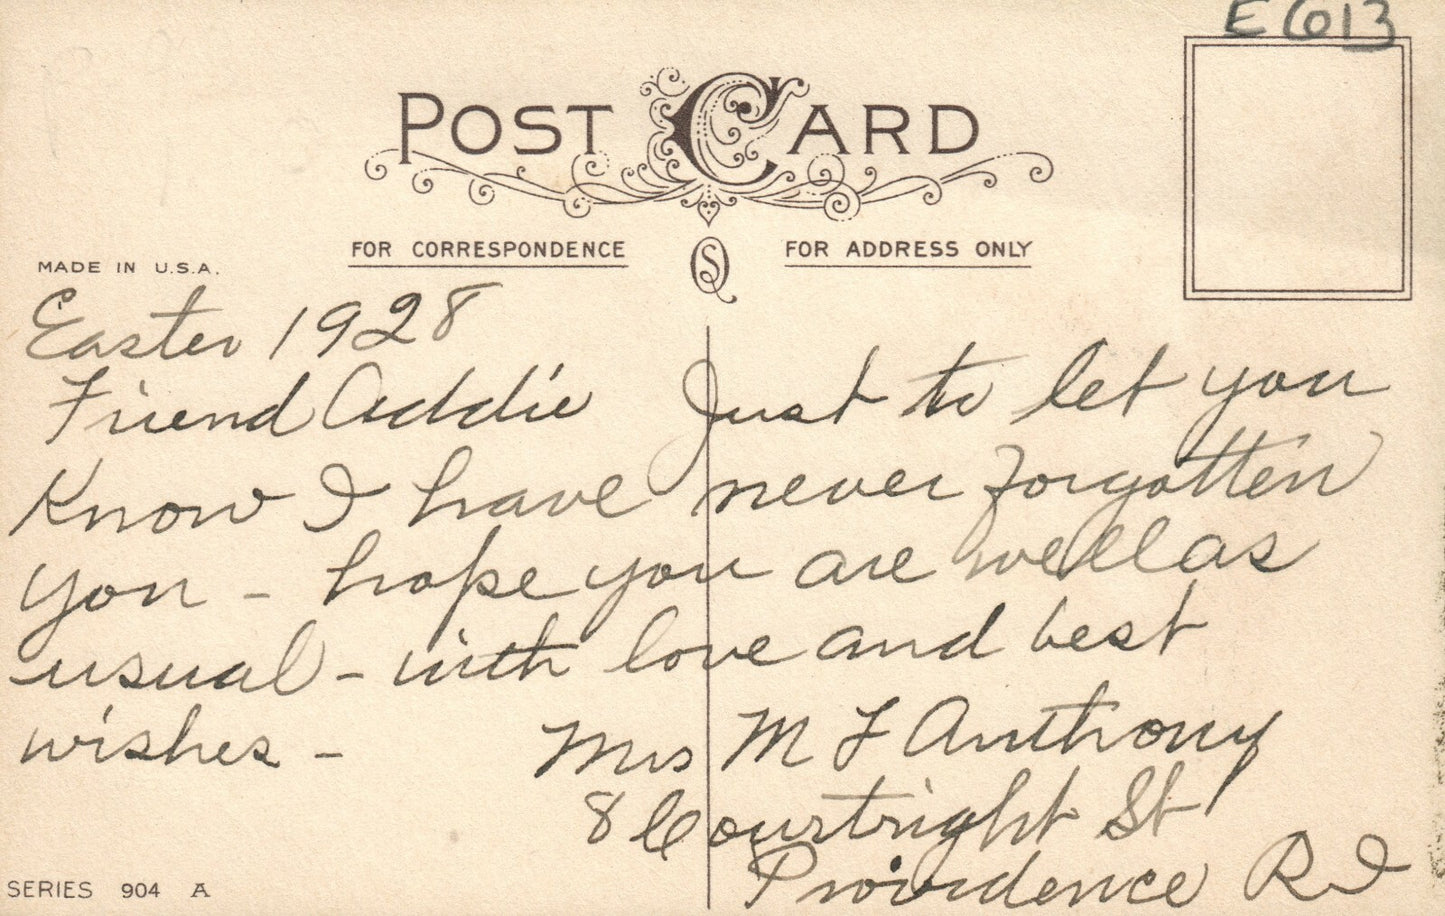 E613
POST CARD
FOR CORRESPONDENCE
FOR ADDRESS ONLY
MADE IN U.S.A.
Easter 1928
Friend Addie Just to let you
Know I have never forgotten
you - hope you are well as
usual - with love and best
wishes -
Mrs M F Anthony
8 Courtright St
Providence R I
SERIES 904 A